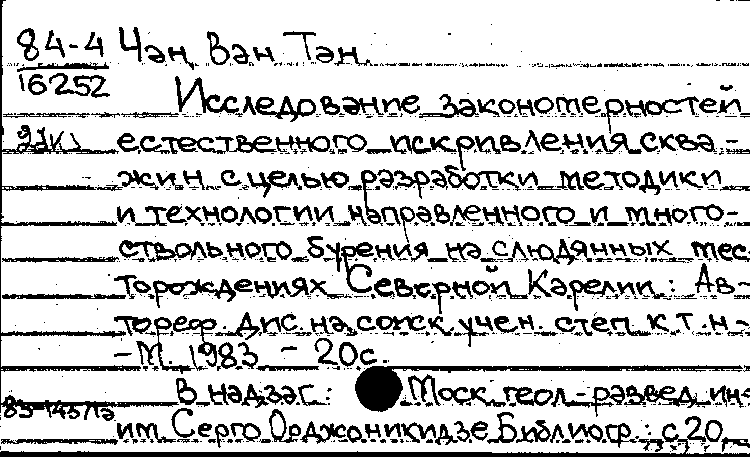 84-4 Чан Ван Тан.
16252
Исследование закономерностей
естественного искривления сква-
жин с целью разработки методики
и технологии направленного и много-
ствольного бурения на слюдянных мес
торождениях Северной Карелии: Ав-
тореф. дис. на соиск учен. степ к.т.н.-
-М., 1983 - 20с.
В надзаг: Моск. геол-развед. ин-
им. Серго Орджоникидзе. Библиогр.: с 20